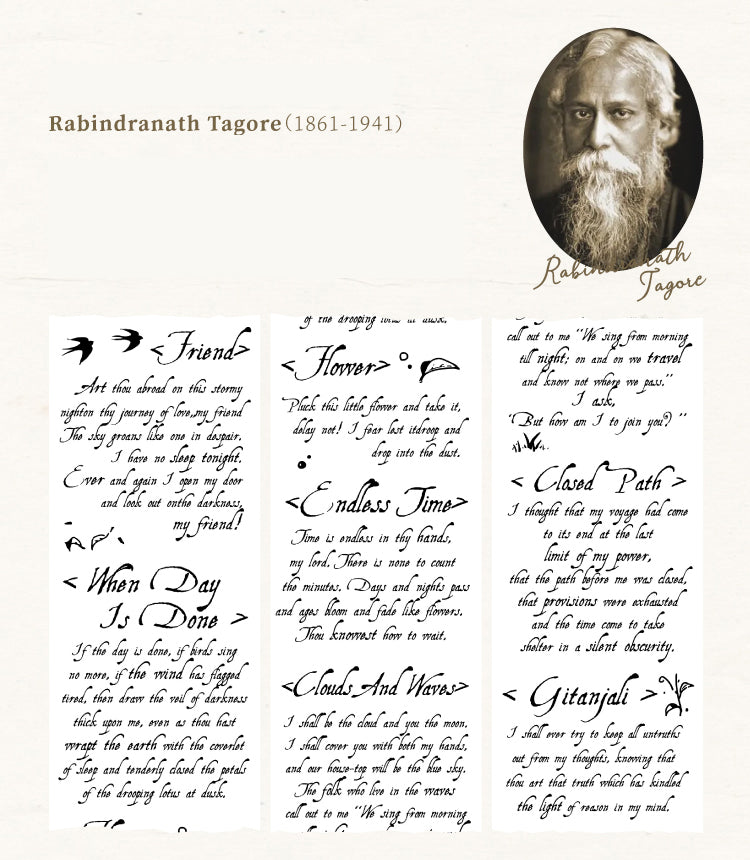 Rabindranath Tagore(1861-1941)
Rabindranath
Tagore
<Friend>
Art thou abroad on this stormy
nighton thy journey of love,my friend
The sky groans like one in despair.
I have no sleep tonight.
Ever and again I open my door
and look out onthe darkness,
my friend!
< When Day
Is Done >
If the day is done, if birds sing
no more, if the wind has flagged
tired, then draw the veil of darkness
thick upon me, even as thou hast
wrapt the earth with the coverlet
of sleep and tenderly closed the petals
of the drooping lotus at dusk.
of the drooping lotus at dusk.
< Flower>
Pluck this little flower and take it,
delay not! I fear lest itdroop and
drop into the dust.
<Endless Time>
Time is endless in thy hands,
my lord. There is none to count
the minutes. Days and nights pass
and ages bloom and fade like flowers.
Thou knowest how to wait.
<Clouds And Waves>
I shall be the cloud and you the moon.
I shall cover you with both my hands,
and our house-top will be the blue sky.
The folk who live in the waves
call out to me "We sing from morning
call out to me "We sing from morning
till night; on and on we travel
and know not where we pass."
I ask,
"But how am I to join you? "
< Closed Path >
I thought that my voyage had come
to its end at the last
limit of my power,
that the path before me was closed,
that provisions were exhausted
and the time come to take
shelter in a silent obscurity.
< Gitanjali >
I shall ever try to keep all untruths
out from my thoughts, knowing that
thou art that truth which has kindled
the light of reason in my mind.